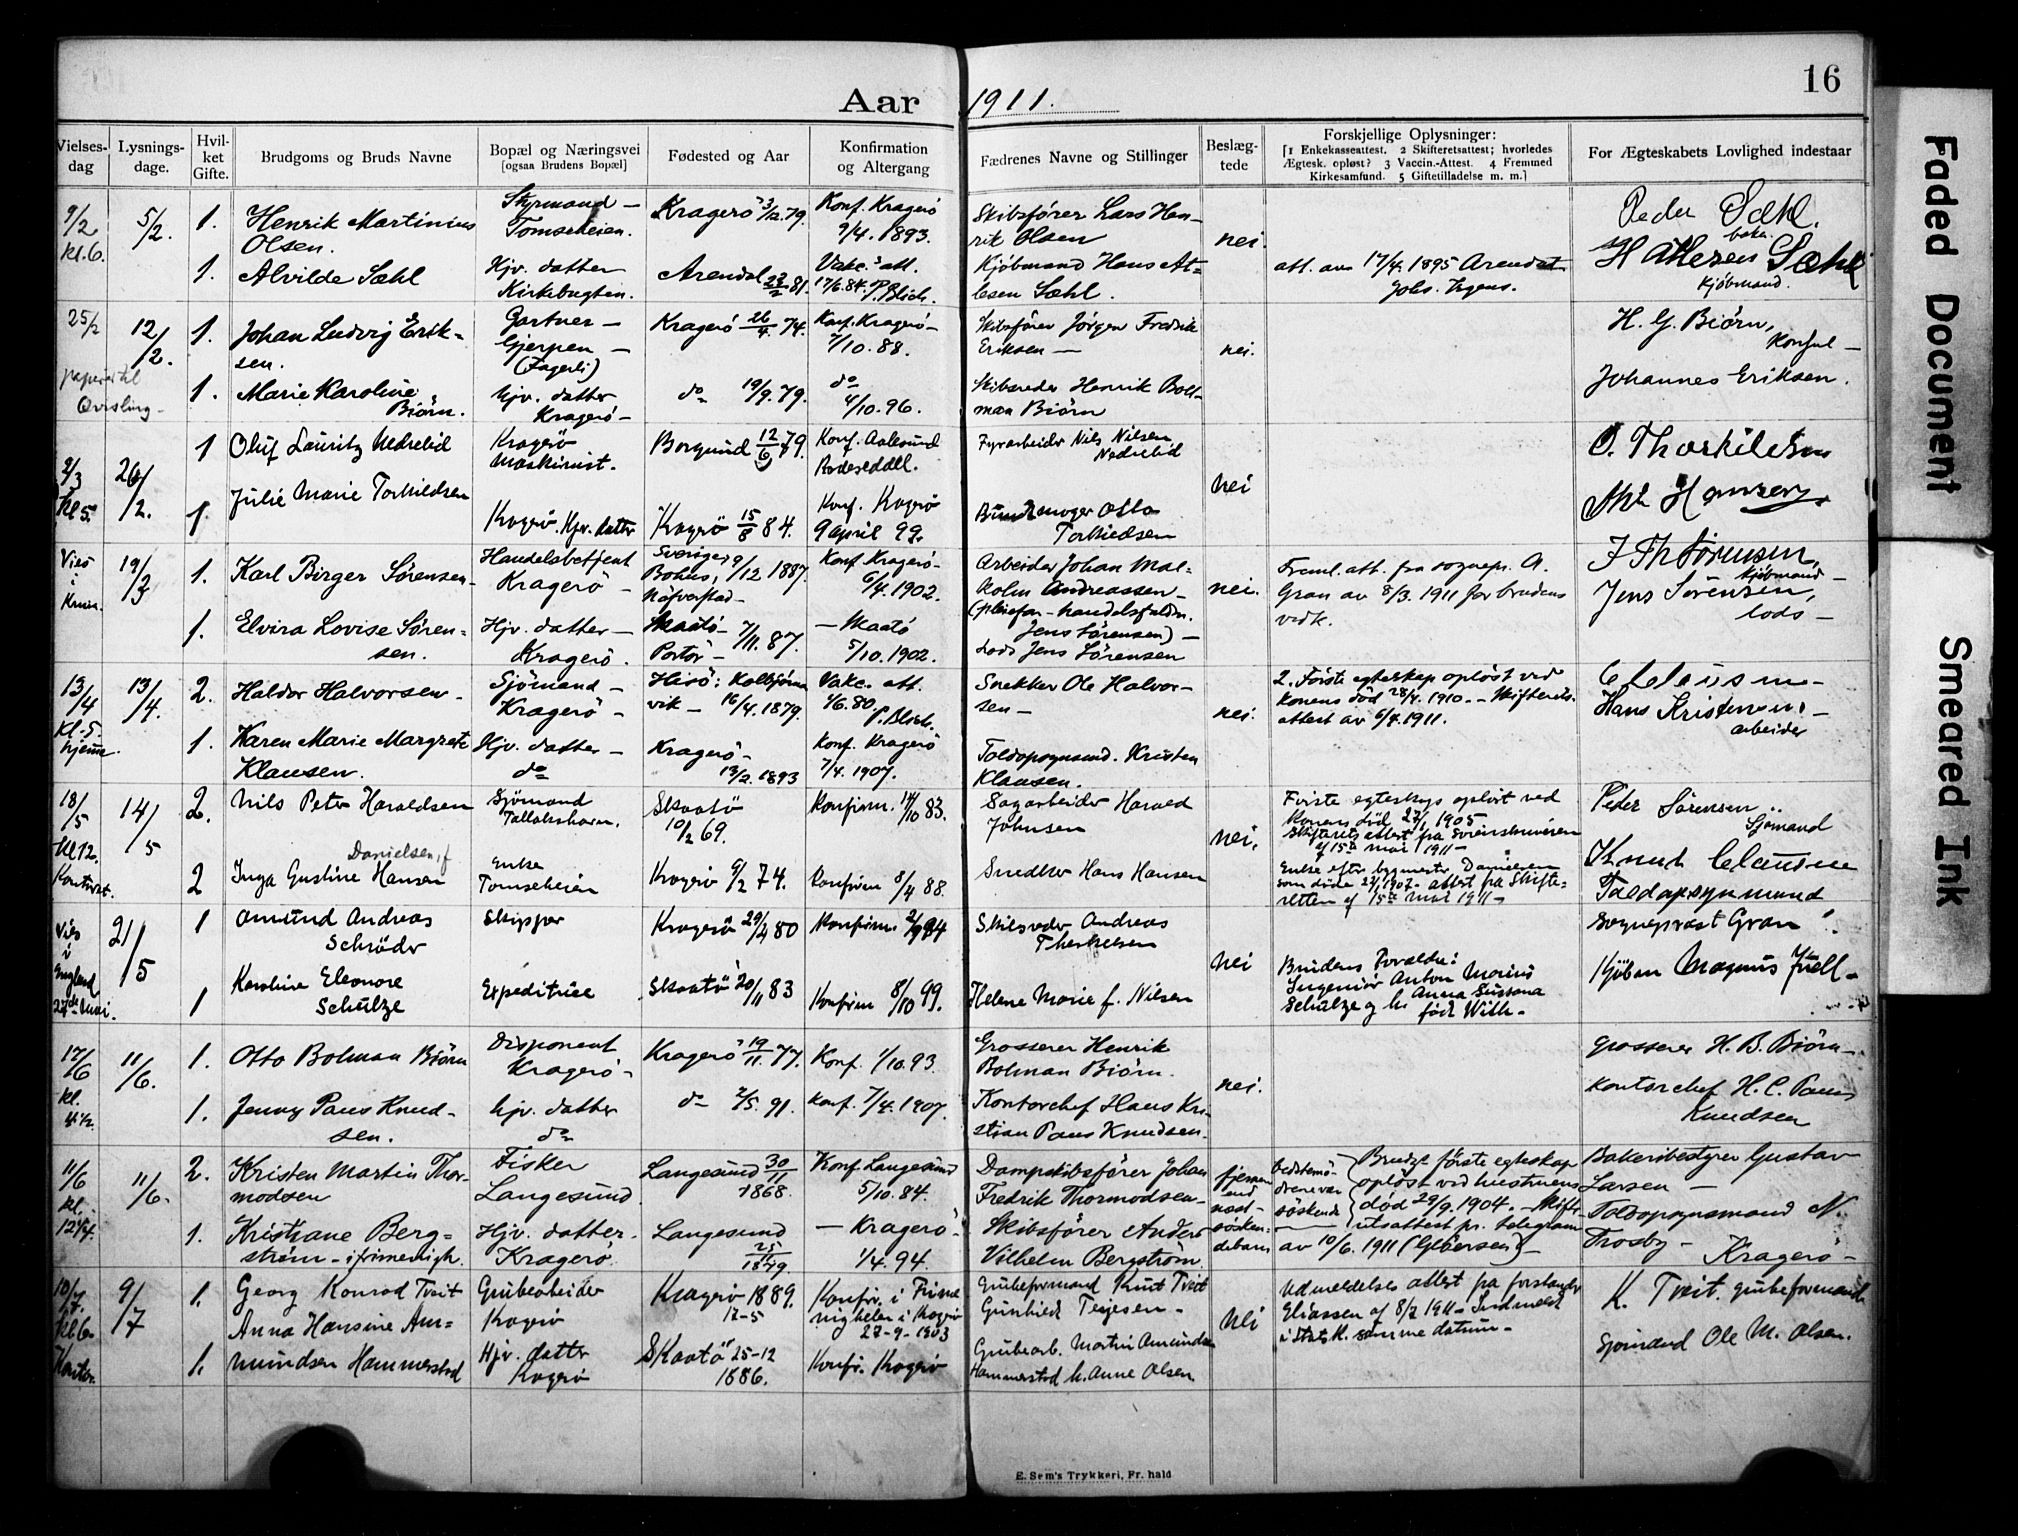 Aar 1911.
16
Vielses-dag
Lysnings-dage.
Hvil-ket Gifte.
Brudgoms og Bruds Navne
Bopæl og Næringsvei [ogsaa Brudens Bopæl]
Fødested og Aar
Konfirmation og Altergang
Fædrenes Navne og Stillinger
Beslæg-tede
Forskjellige Oplysninger:
[1 Enkekasseattest. 2 Skifteretsattest; hvorledes
Ægtesk. opløst? 3 Vaccin.-Attest. 4 Fremmed
Kirkesamfund. 5 Giftetilladelse m. m.]
For Ægteskabets Lovlighed indestaar
9/2 kl. 6.
5/2.
1. Henrik Martinius Olsen.
Styrmand – Tomteheien.
Kragerø 3/2. 79.
Konf. Kragerø 9/4. 1893.
Skibsfører Lars Hen-
rik Olsen
nei.
Peder Sæhl.
1. Alvilde Sæhl
Hjv. datter Kirkebugten.
Arendal 23/2 81.
Vakc. att. 17/6. 84. P. Blich.
Kjøbmand Hans At-
lesen Sæhl.
att. av 17/4. 1895 Arendal
Johs. Irgens.
H Atlesen Sæhl
Kjøbmand.
25/2
12/2.
papirer til Qvisling –
1. Johan Ludvig Erik-
sen.
Gartner – Gjerpen – (Fagerli)
Kragerø 26/4. 74.
Konf. Kragerø – 7/10. 88.
Skibsfører Jørgen Fredrik
Eriksen –
nei.
H. G. Biørn,
Konsul –
1. Marie Karoline
Biørn.
Hjv. datter Kragerø –
do 19/9. 79.
do 4/10. 96.
Skibsreder Henrik Boll-
man Biørn
Johannes Eriksen.
2/3 Kl 5.
26/2.
1 Oluf Lauritz Nedrelid
Kragerø Maskinist.
Borgund 12/6 79.
Konf. Aalesund
Fyrarbeider Nils Nilsen
Nedrelid
nei
O. Thorkildsen
1. Julie Marie Torkildsen
Kragerø. Hjv. datter
Kragerø 15/8 84.
Konf. Kragerø 9 april 99.
Otto
Torkildsen
Hansen
Vies i
19/3
1. Karl Birger Sørensen –
Handelsbetjent Kragerø –
Sverige, Bohus, 9/12 1887.
Konf Kragerø – 6/4. 1902.
Arbeider Johan Mal-
kolm Andreassen –
(pleiefar – handelsfuldm.
Jens Sørensen) –
nei.
Freml. att. fra sognepr. A.
Gran av 8/3. 1911 for brudens
vedk.
J Th Sørensen,
Kjøbmand –
1. Elvira Lovise Søren-
sen.
Hjv. datter – Kragerø.
Skaatø – Portør – 7/11. 87.
– Skaatø 5/10. 1902.
Lods Jens Sørensen
Jens Sørensen,
lods –
13/4 kl. 5. hjemme.
13/4.
2. Haldor Halvorsen –
Sjømand – Kragerø –
Hisø: Kolbjørns-
vik – 16/4. 1879.
Vakc. att. 4/6. 80. P. Blich.
Snekker Ole Halvor-
sen –
nei.
2. Første egteskap opløst ved
konens død 28/4. 1910. – Skifterets-
attest av 6/4. 1911.
1. Karen Marie Margrete
Klausen.
Hjv. datter – do
Kragerø – 13/2. 1893
Konf. Kragerø 7/4. 1907.
Toldopsynsmd. Kristen
Klausen.
Hans Kristensen, –
arbeider
18/5 Kl 12. Kontoret.
14/5
2. Nils Peter Haraldsen
Sjømand Tallakshavn.
Skaatø 10/2 69.
Konfirm. 14/10 83.
Sagarbeider Harald
Johnsen
nei,
Første egteskap opløst ved
konens død 23/1 1905
Skifterets attest fra Sorenskriveren
af 15de mai 1911 –
Peder Sørensen
Sjømand
2 Inga Gustine Danielsen, f Hansen
Enke Tomteheien
Kragerø 9/2 74.
Konfirm 8/4 88.
Smedker Hans Hansen
Enke efter bygmester Danielsen
som døde 23/1 1907 – attest fra Skifte-
retten af 15de mai 1911 –
Knud Clausen
Toldopsynmand
Vies i England 27de mai.
21/5
1 Amund Andreas
Schrøder
Skipper
Kragerø 29/4 80
Skibsreder Andreas
Therkelsen
nei
Sogneprest Gran
1 Karoline Eleonore
Schulze
Expeditrice
Skaatø 20/11 83
Konfirm 8/10 99.
Helene Marie f. Nilsen
Brudens Forældre:
Ingeniør Anton Marius
Schulze og h. Anna Sussana
født With –
Kjøbm Magnus Juell –
17/6 kl.
11/6.
1. Otto Bolman Biørn
Disponent Kragerø –
Kragerø 19/11. 77.
Konf. 1/10. 93.
Grosserer Henrik
Bolman Biørn.
nei.
Grosserer H. B. Biørn –
1. Jenny Paus Knud-
sen.
hjv. datter do
do 2/5. 91.
Konf. 7/4. 1907.
Kontorchef Hans Kri-
stian Paus Knudsen.
Kontorchef H. C. Paus
Knudsen
11/6 kl. 12 1/4.
11/6.
2. Kristen Martin Thor-
modsen
Fisker Langesund
Langesund 30/11 1868.
Konf Langesund 5/10. 84.
Dampskibsfører Johan
Fredrik Thormodsen –
fjernere end næst-søsken-debarn
bedstemø-
drene var
søskende
Brudg. første egteskap
opløst ved hustruens
død 29/9. 1904. – Skifte-
retsattest pr. telegram
av 10/6. 1911
Bakeribestyrer Gustav
Larsen –
1. Kristiane Berg-
strøm – i frimenigh.
Hjv. datter. Kragerø
Langesund 25/11 1879.
– Kragerø – 1/4. 94.
Skibsfører Anders
Vilhelm Bergstrøm
Toldopsynsmand N.
Trosby – Kragerø –
10/7. kl 6. Kontor.
9/7
1. Georg Konrad Tveit
Grubearbeider Kragerø
Kragerø 1889. 12-5
Konfir. i Frime-
nigheten i Kragerø
27-9-1903
Grubeformand Knut Tveit
Gunhild Terjesen –
nei
Udmeldelses attest fra forstander
Eliassen af 8/7 1911 – Indmeldt
i Statsk. samme datum –
K. Tveit. grubeformand.
1. Anna Hansine Am-
mundsen Hammerstad
Hjv. datter Kragerø
Skaatø 25-12 1886.
Konfir. Kragerø
Grubearb. Martin Amundsen
Hammerstad h. Anne Olsen
Sjømand Ole M. Olsen.
E. Sem's Trykkeri, Fr. hald
Faded Document
Smeared Ink